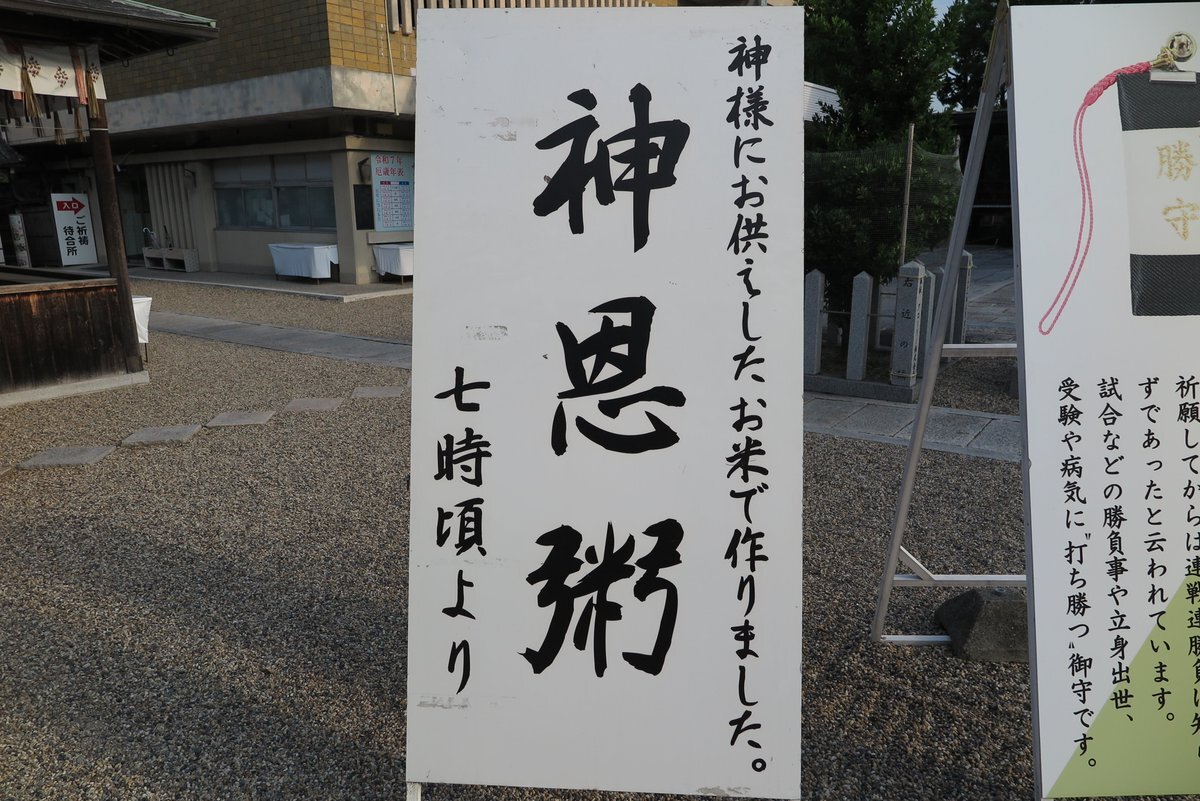 神様にお供えしたお米で作りました。
神恩粥
七時頃より
勝守
祈願してからは連戦連勝負け知
ずであったと云われています。
試合などの勝負事や立身出世、
受験や病気に"打ち勝つ"御守です。
入口
ご祈祷
待合所
令和7年
厄歳年表
右近の